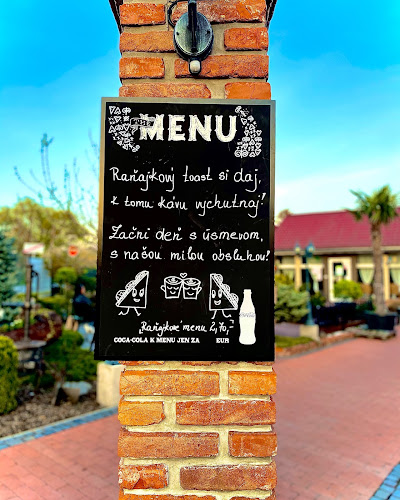 MENU
Raňajkový toast si daj,
k tomu kávu vychutnaj!
Začni deň s úsmevom,
s našou milou obsluhou!
Raňajkové menu 2,70,-
COCA-COLA K MENU JEN ZA EUR